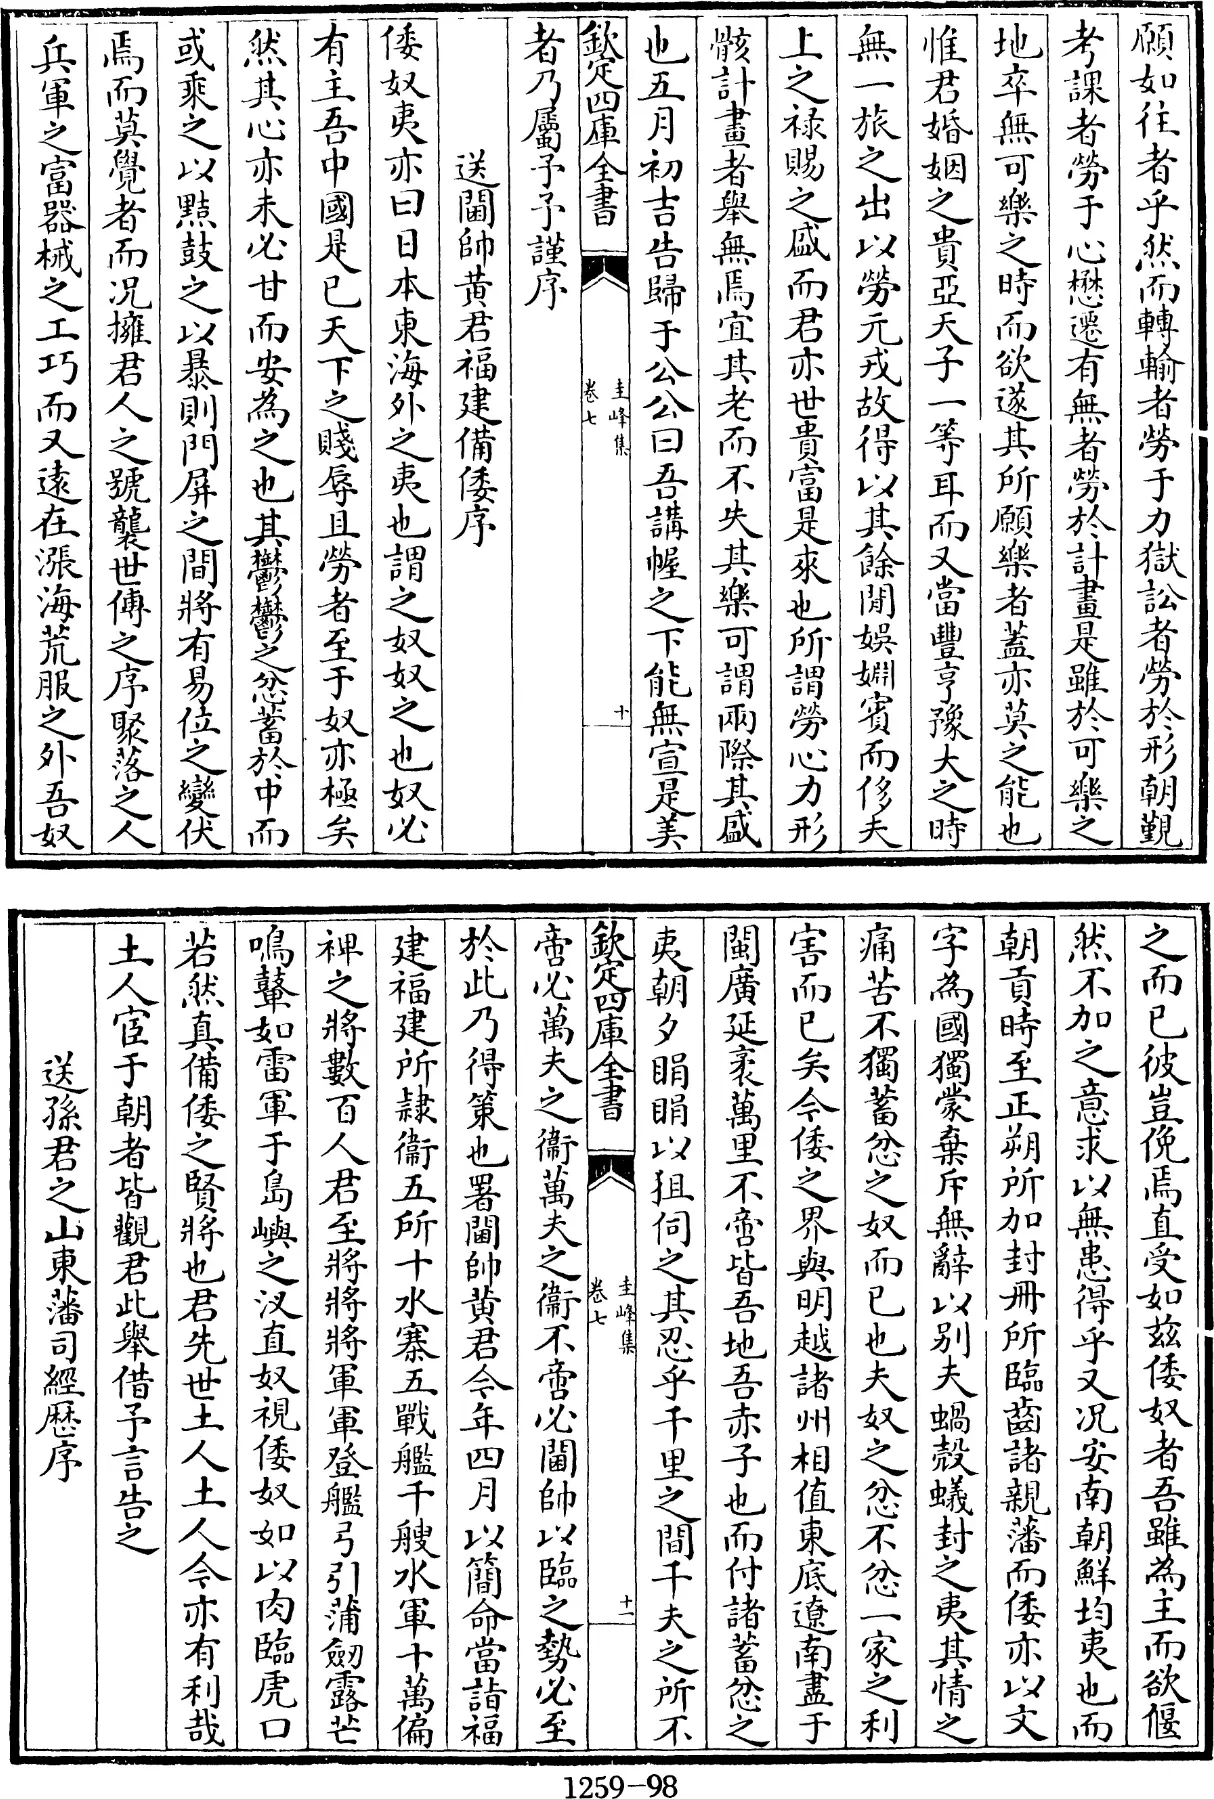 願如往者乎然而轉輸者勞于力獄訟者勞於形朝覲
考課者勞于心懋遷有無者勞於計畫是雖於可樂之
地卒無可樂之時而欲遂其所願樂者蓋亦莫之能也
惟君婚姻之貴亞天子一等耳而又當豐亨豫大之時
無一旅之出以勞元戎故得以其餘閒娛嫻賓而侈夫
上之禄賜之盛而君亦世貴富是來也所謂勞心力形
骸計畫者舉無焉宜其老而不失其樂可謂兩際其盛
也五月初吉告歸于公公曰吾講幄之下能無宣是美
欽定四庫全書
圭峰集
卷七
十
者乃屬予予謹序
送閫帥黄君福建備倭序
倭奴夷亦曰日本東海外之夷也謂之奴奴之也奴必
有主吾中國是已天下之賤辱且勞者至于奴亦極矣
然其心亦未必甘而安為之也其鬱鬱之忿蓄於中而
或乘之以黠鼓之以暴則門屏之間將有易位之變伏
焉而莫覺者而况擁君人之號襲世傳之序聚落之人
兵軍之富器械之工巧而又遠在漲海荒服之外吾奴
之而已彼豈俛焉直受如兹倭奴者吾雖為主而欲偃
然不加之意求以無患得乎又况安南朝鮮均夷也而
朝貢時至正朔所加封冊所臨齒諸親藩而倭亦以文
字為國獨蒙棄斥無辭以别夫蝸殻蟻封之夷其情之
痛苦不獨蓄忿之奴而已也夫奴之忿不忿一家之利
害而已矣今倭之界與明越諸州相值東底遼南盡于
閩廣延袤萬里不啻皆吾地吾赤子也而付諸蓄忿之
夷朝夕睊睊以狙伺之其忍乎千里之間千夫之所不
欽定四庫全書
圭峰集
卷七
十一
啻必萬夫之衞萬夫之衞不啻必閫帥以臨之勢必至
於此乃得策也署閫帥黄君今年四月以簡命當詣福
建福建所隷衞五所十水寨五戰艦千艘水軍十萬偏
裨之將數百人君至將將將軍軍登艦弓引蒲劒露芒
鳴鼙如雷軍于島嶼之汊直奴視倭奴如以肉臨虎口
若然真備倭之賢將也君先世土人土人今亦有利哉
土人宦于朝者皆觀君此舉借予言告之
送孫君之山東藩司經歴序
1259-98